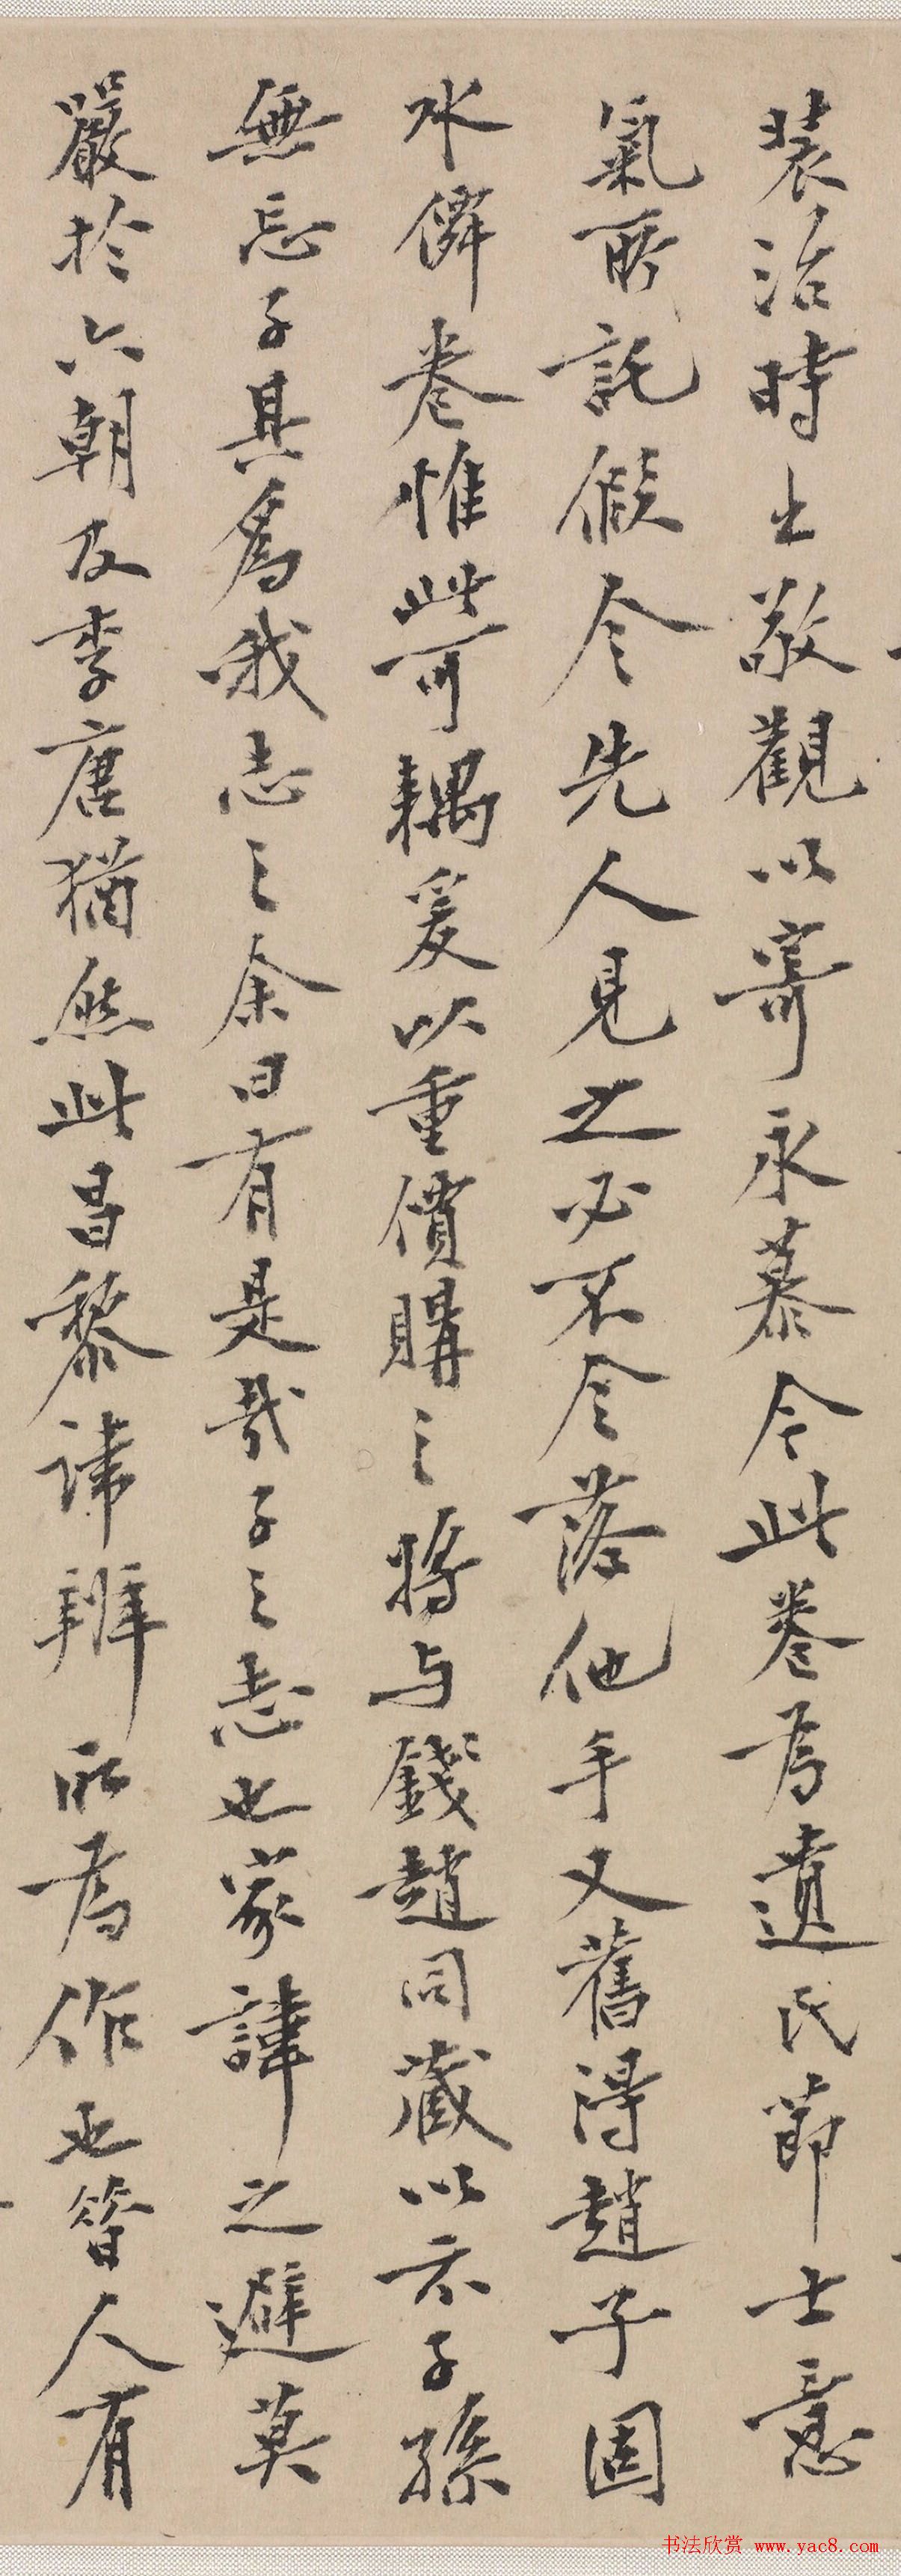 裝治時出敬觀以寄永慕今此卷爲遺民節士意
氣所託假令先人見之必不令落他手又舊得趙子固
水僊卷惟此可耦爰以重價購之將与錢趙同藏以示子孫
無忘子其爲我志之余曰有是哉子之志也家諱之避莫
嚴於六朝及李唐猶然此昌黎諱辨所爲作也昝人有
书法欣赏 www.yac8.com